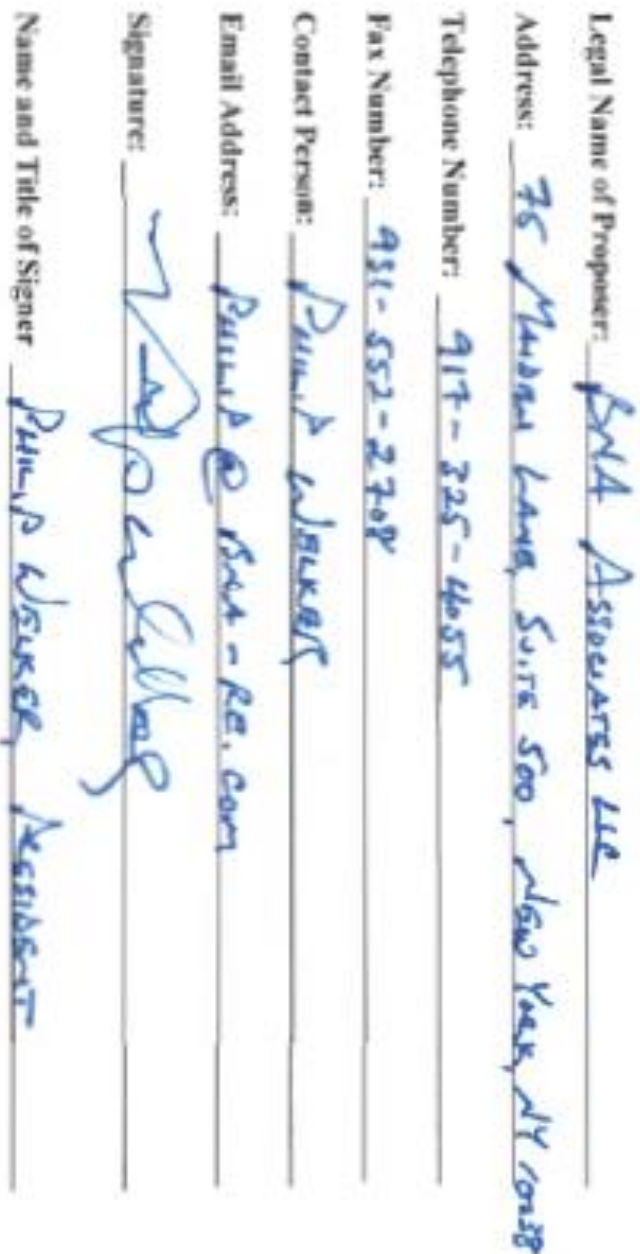 Legal Name of Proposer: BNA Associates LLC
Address: 75 Maiden Lane, Suite 500, New York, NY 10038
Telephone Number: 917-325-4055
Fax Number: 931-552-2708
Contact Person: Philip Welker
Email Address: Philip@BNA-RE.com
Signature:
Name and Title of Signer Philip Welker, President